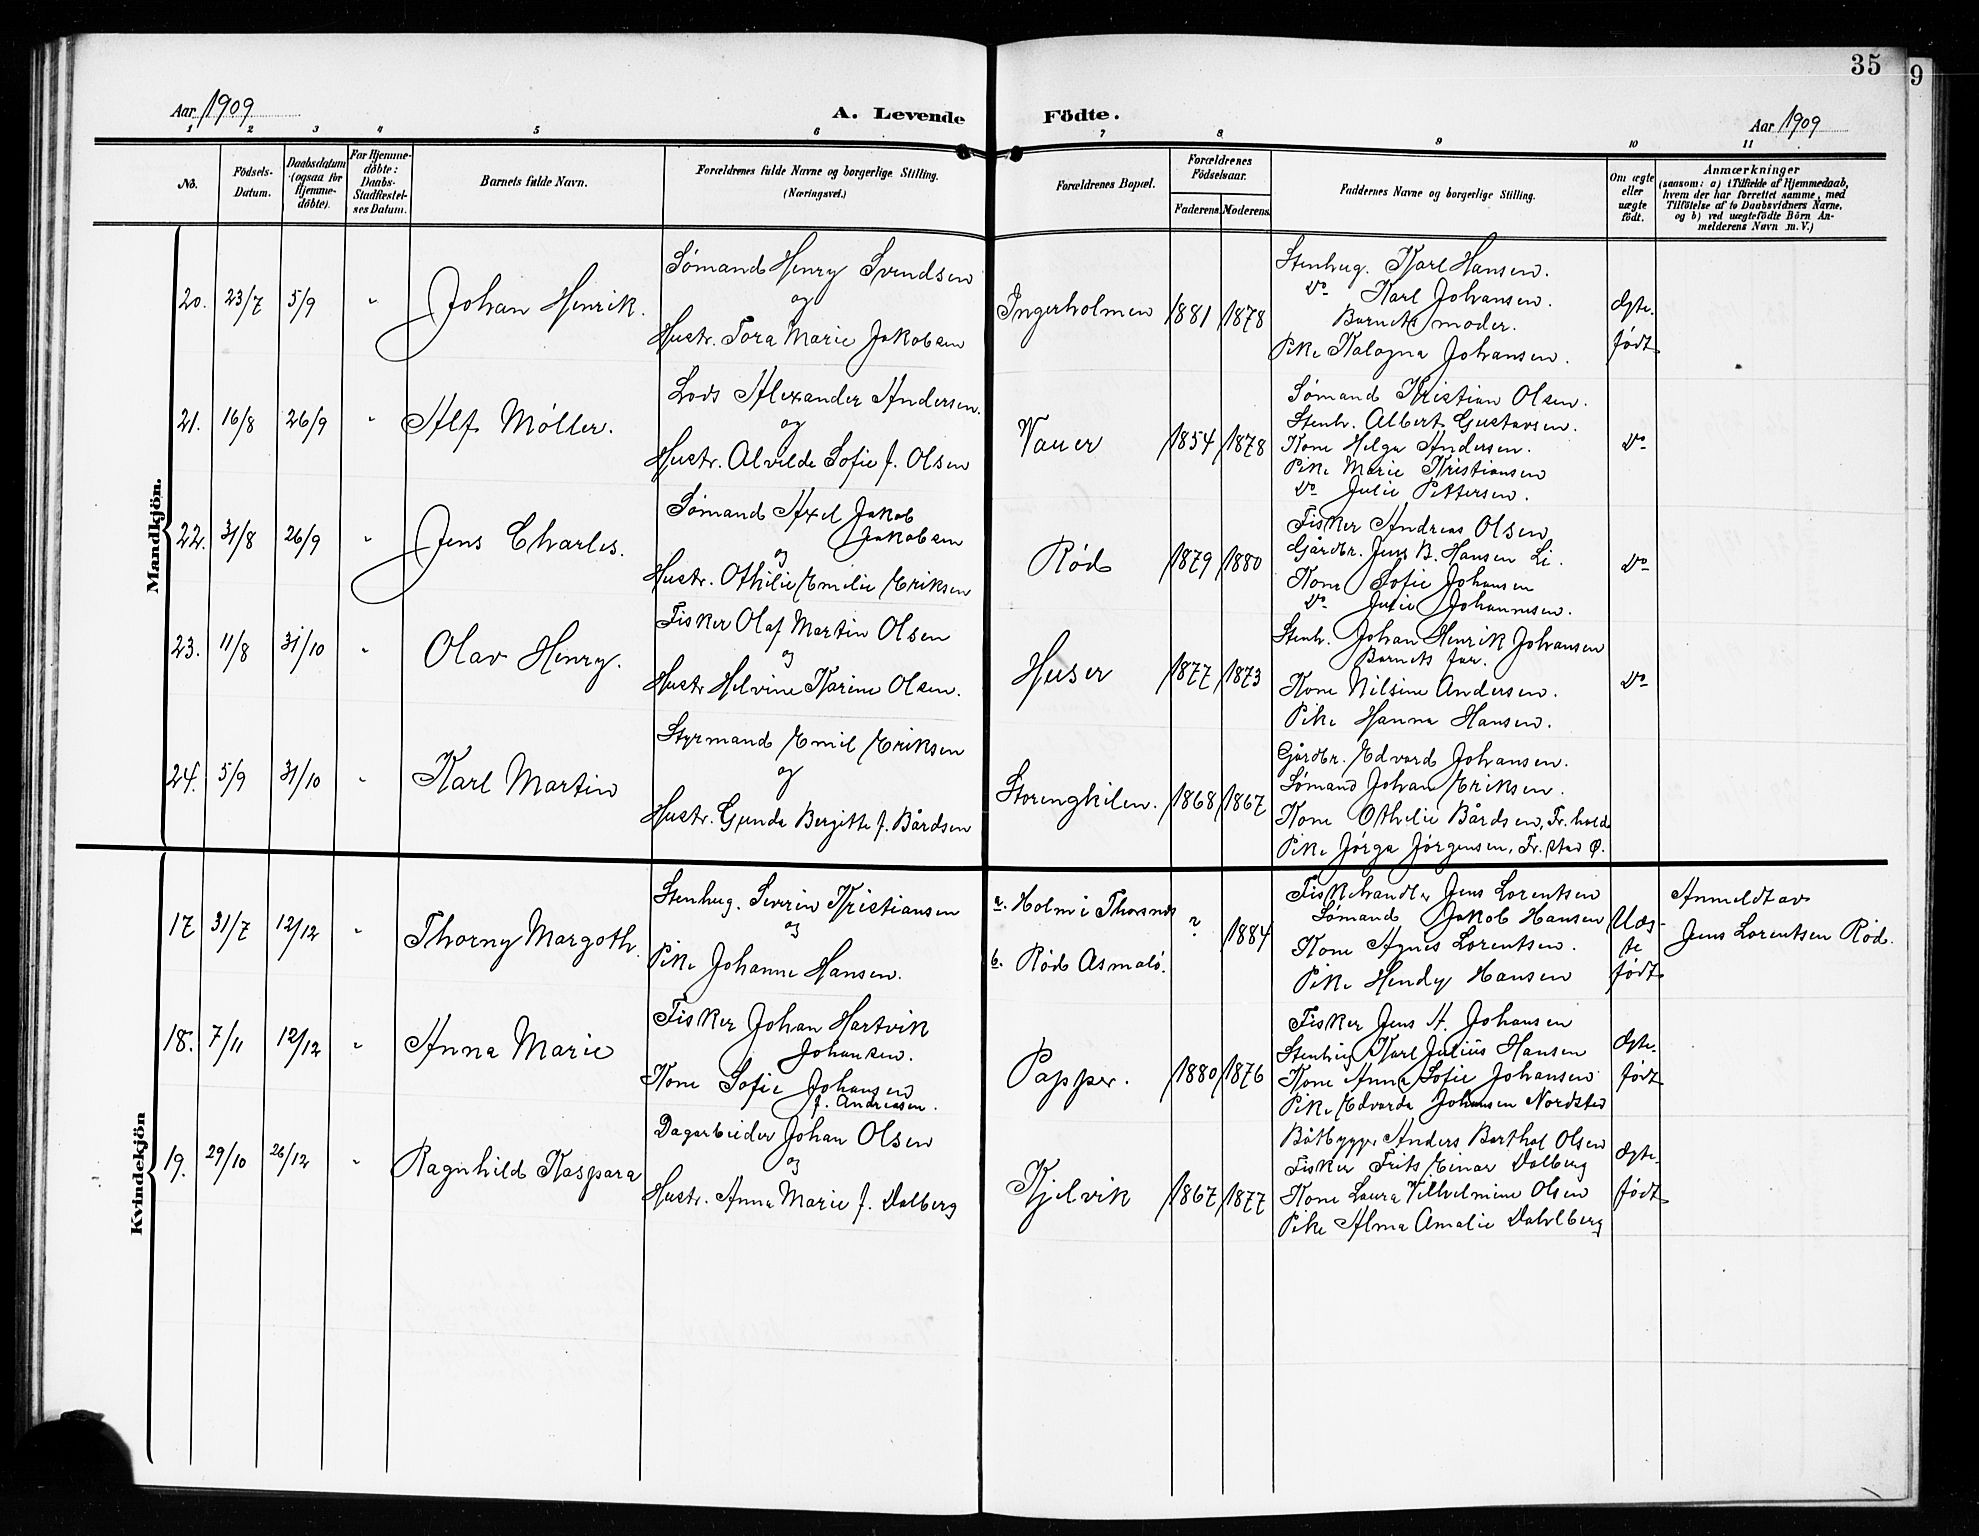 35
9
Aar 1909
A. Levende Födte.
Aar 1909
1 2 3 4 5 6 7 8 9 10 11
No.
Födsels-
Datum.
Daabsdatum
(ogsaa for
Hjemme-
döbte).
For Hjemme-
döbte:
Daabs-
Stadfæstel-
ses Datum.
Barnets fulde Navn.
Forældrenes fulde Navne og borgerlige Stilling.
(Næringsvei.)
Forældrenes Bopæl.
Forældrenes
Födselsaar.
Faderens.
Moderens.
Faddernes Navne og borgerlige Stilling.
Om ægte
eller
uægte
födt.
Anmærkninger
(saasom: a) i Tilfælde af Hjemmedaab,
hvem der har forrettet samme, med
Tilföielse af to Daabsvidners Navne,
og b) ved uægtefödte Börn An-
melderens Navn m. V.)
Mandkjön.
20. 23/7 5/9 "
Johan Henrik.
Sømand Henry Svendsen
og
Hustr. Tora Marie Jakobsen
Ingerholmen
1881
1878
Stenhug. Karl Hansen.
do Karl Johansen.
Barnets moder.
Pike Kalogna Johansen.
Ægte.
født
21. 16/8 26/9 "
Alf Møller.
Lods Alexander Andersen.
og
Hustr. Alvilde Sofie f. Olsen
Vauer
1854
1878
Sømand Kristian Olsen.
Stenh. Albert Gustavsen.
Kone Helga Andersen.
Pike Marie Kristiansen
do Julie Pettersen.
do
22. 31/8 26/9 "
Jens Charles.
Sømand Axel Jakob
Jakobsen
og
Hustr. Othilie Emilie Eriksen
Rød
1879
1880
Fisker Andreas Olsen
Gårdbr. Jens B. Hansen Li.
Kone Sofie Johansen
do Julie Johannesen.
do
23. 11/8 31/10 "
Olav Henry.
Fisker Olaf Martin Olsen
og
Hustr Helvine Karine Olsen.
Huser
1877
1873
Stenh. Johan Henrik Johansen
Barnets far.
Kone Nilsine Andersen.
Pike Hanna Hansen.
do
24. 5/9 31/10 "
Karl Martin
Styrmand Emil Eriksen
og
Hustr. Gunda Bergitte f. Bårdsen
Storengkilen.
1868
1867
Gårdbr. Edvard Johansen.
Sømand Johan Eriksen.
Kone Othilie Bårdsen, Fr. hald
Pike Jørga Jørgensen, Fr. stad Ø.
Kvindekjön
17 31/7 12/12 "
Thorny Margoth.
Stenhug. Severin Kristiansen
og
Pike Johanne Hansen.
a. Holm i Thorsnes
b. Rød Asmalø.
?
1884
Fiskehandler Jens Lorentsen
Sømand Jakob Hansen
Kone Agnes Lorentsen.
Pike Hendy Hansen
Uæg-
te
født
Anmeldt av
Jens Lorentsen Rød.
18. 7/11 12/12 "
Anna Marie
Fisker Johan Hartvik
Johansen.
Kone Sofie Johansen
f. Andreasen.
Papper.
1880
1876
Fisker Jens A. Johansen
Stenhug Karl Julius Hansen
Kone Anna Sofie Johansen
Pike Edvarda Johansen Nordsted
Ægte.
født
19. 29/10 26/12 "
Ragnhild Kaspara
Dagarbeider Johan Olsen
og
Hustr. Anna Marie f. Dalberg
Kjelvik
1867
1877
Båtbygger Anders Barthol Olsen
Fisker Frits Einar Dalberg
Kone Laura Vilhelmine Olsen
Pike Alma Amalie Dahlberg
Ægte.
født